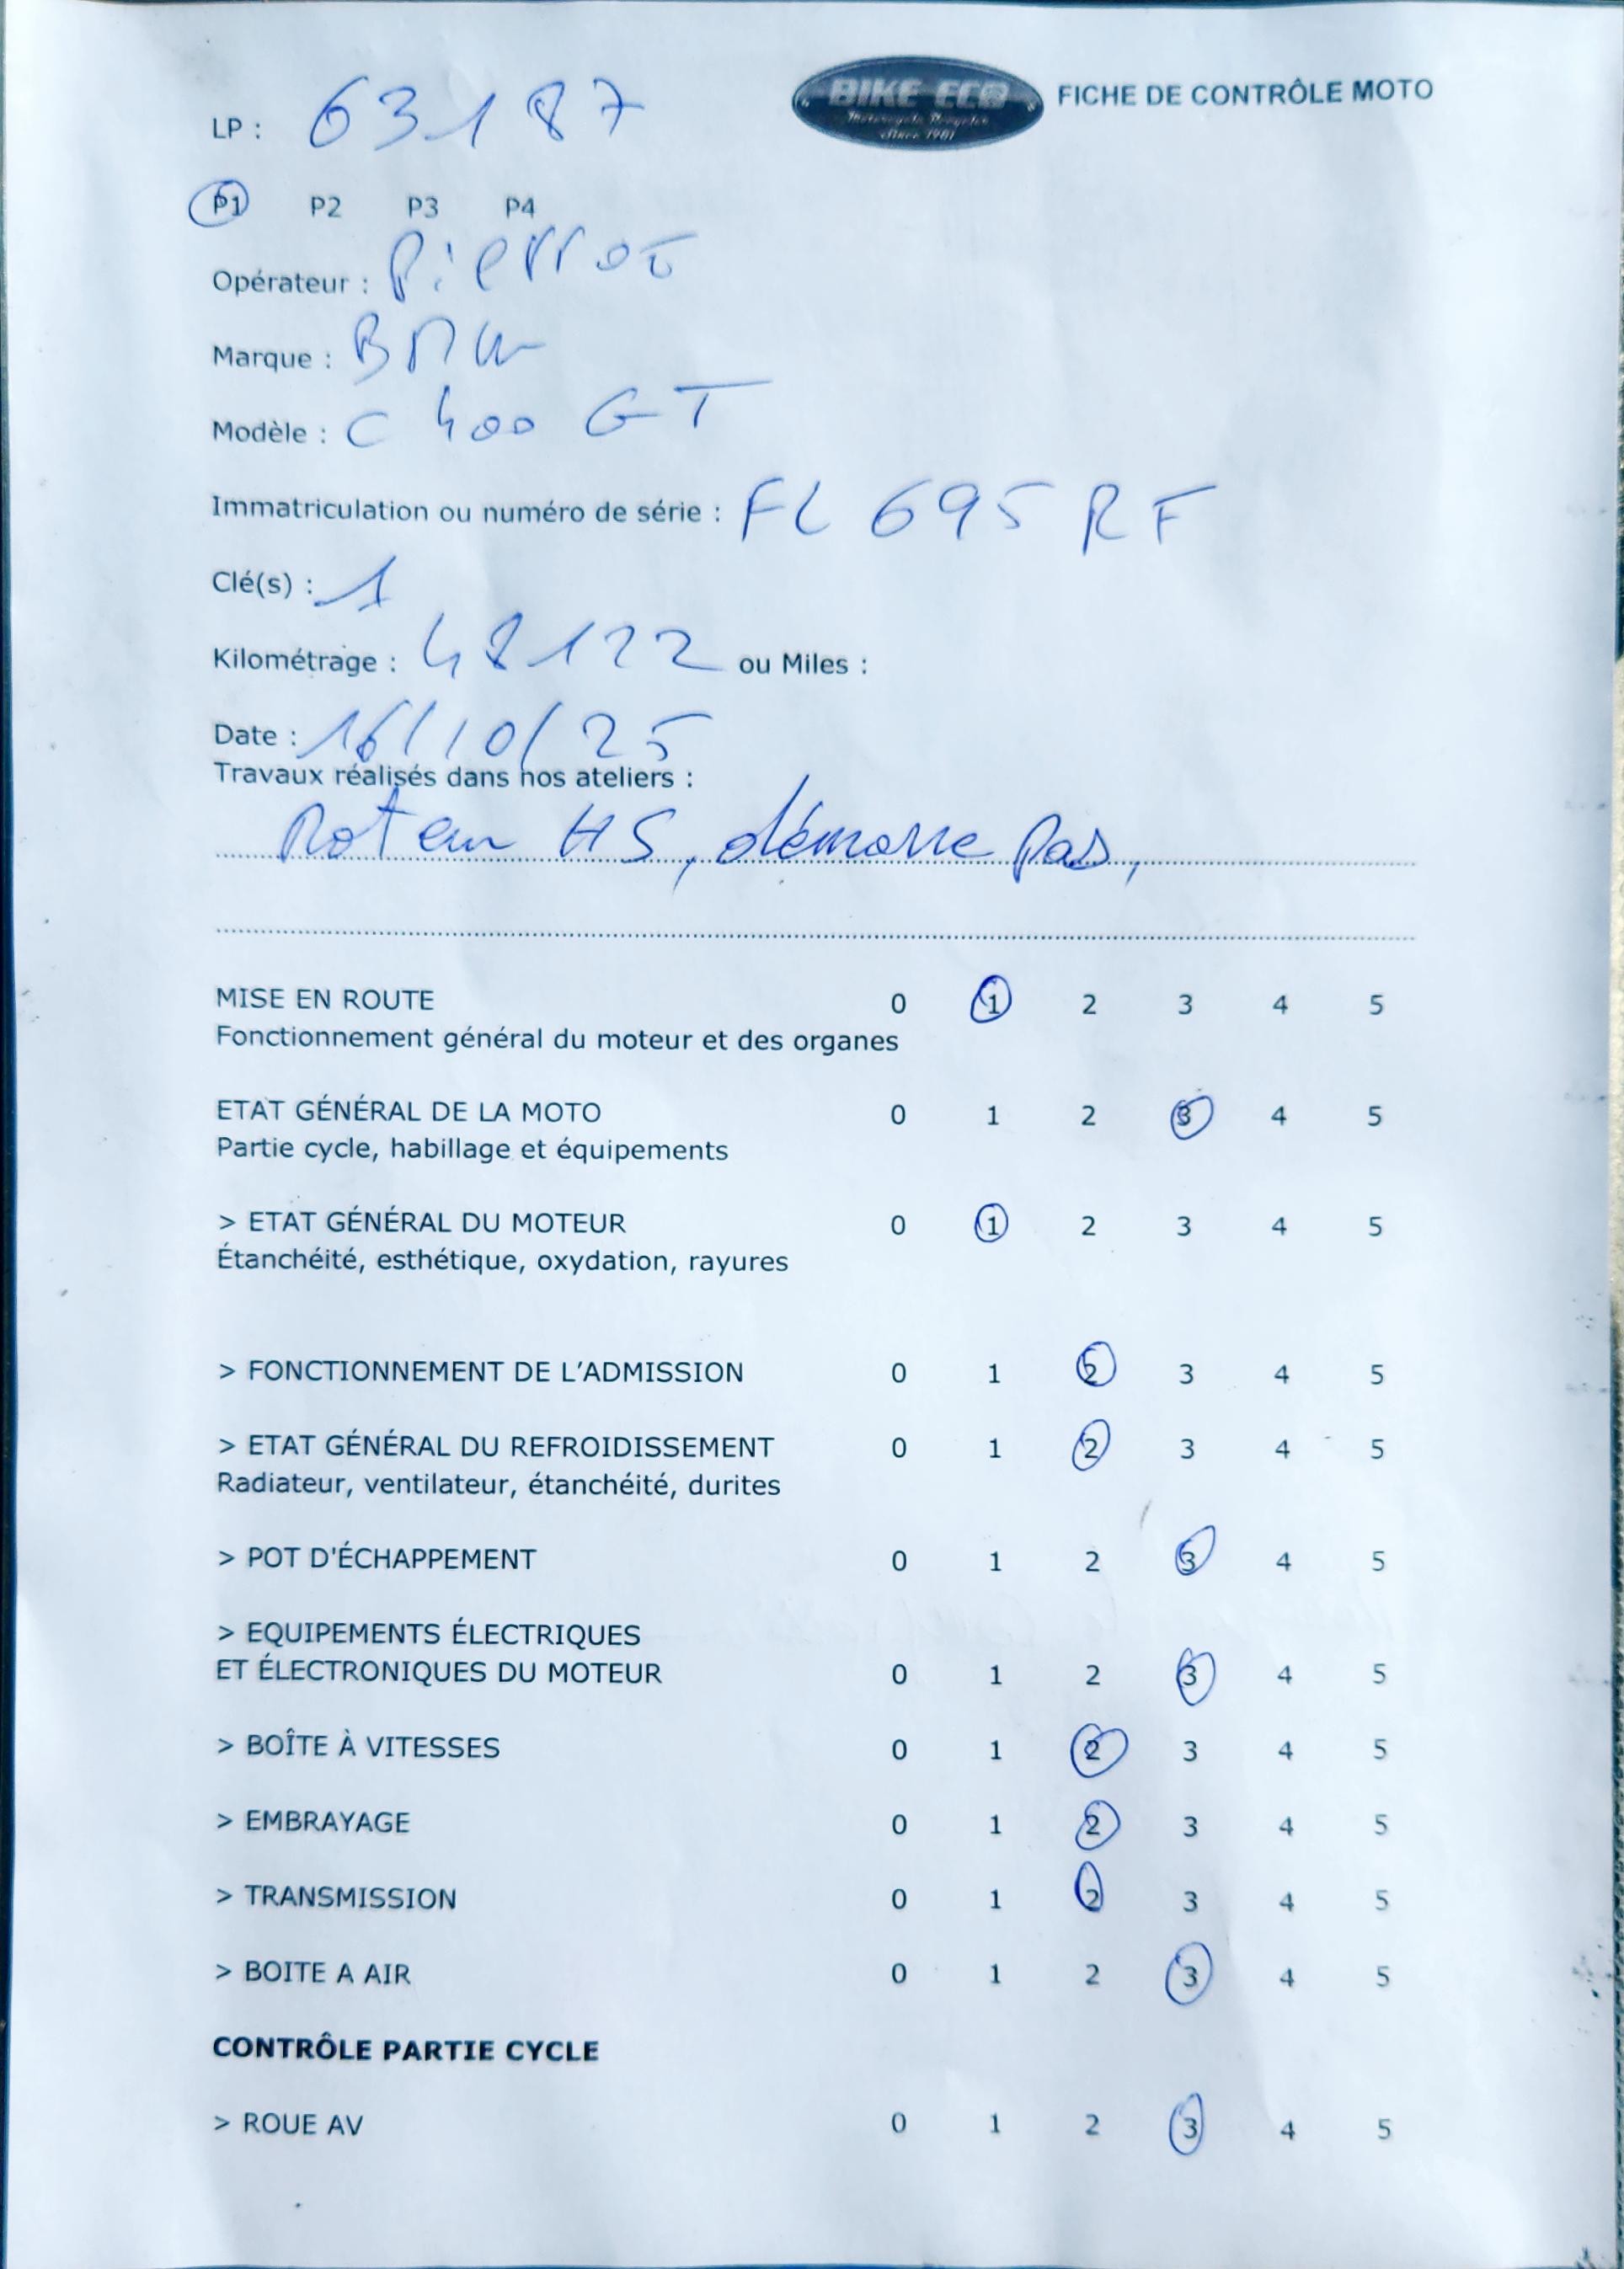 BIKE ECO
Motorcycle Recycler
Since 1981
FICHE DE CONTRÔLE MOTO
LP : 63187
P1 P2 P3 P4
Opérateur : Pierrot
Marque : BMW
Modèle : C 400 GT
Immatriculation ou numéro de série : FL 695 RF
Clé(s) : 1
Kilométrage : 48122 ou Miles :
Date : 16/10/25
Travaux réalisés dans nos ateliers :
Moteur HS, démarre pas,
MISE EN ROUTE 0 1 2 3 4 5
Fonctionnement général du moteur et des organes
ETAT GÉNÉRAL DE LA MOTO 0 1 2 3 4 5
Partie cycle, habillage et équipements
> ETAT GÉNÉRAL DU MOTEUR 0 1 2 3 4 5
Étanchéité, esthétique, oxydation, rayures
> FONCTIONNEMENT DE L'ADMISSION 0 1 2 3 4 5
> ETAT GÉNÉRAL DU REFROIDISSEMENT 0 1 2 3 4 5
Radiateur, ventilateur, étanchéité, durites
> POT D'ÉCHAPPEMENT 0 1 2 3 4 5
> EQUIPEMENTS ÉLECTRIQUES
ET ÉLECTRONIQUES DU MOTEUR 0 1 2 3 4 5
> BOÎTE À VITESSES 0 1 2 3 4 5
> EMBRAYAGE 0 1 2 3 4 5
> TRANSMISSION 0 1 2 3 4 5
> BOITE A AIR 0 1 2 3 4 5
CONTRÔLE PARTIE CYCLE
> ROUE AV 0 1 2 3 4 5